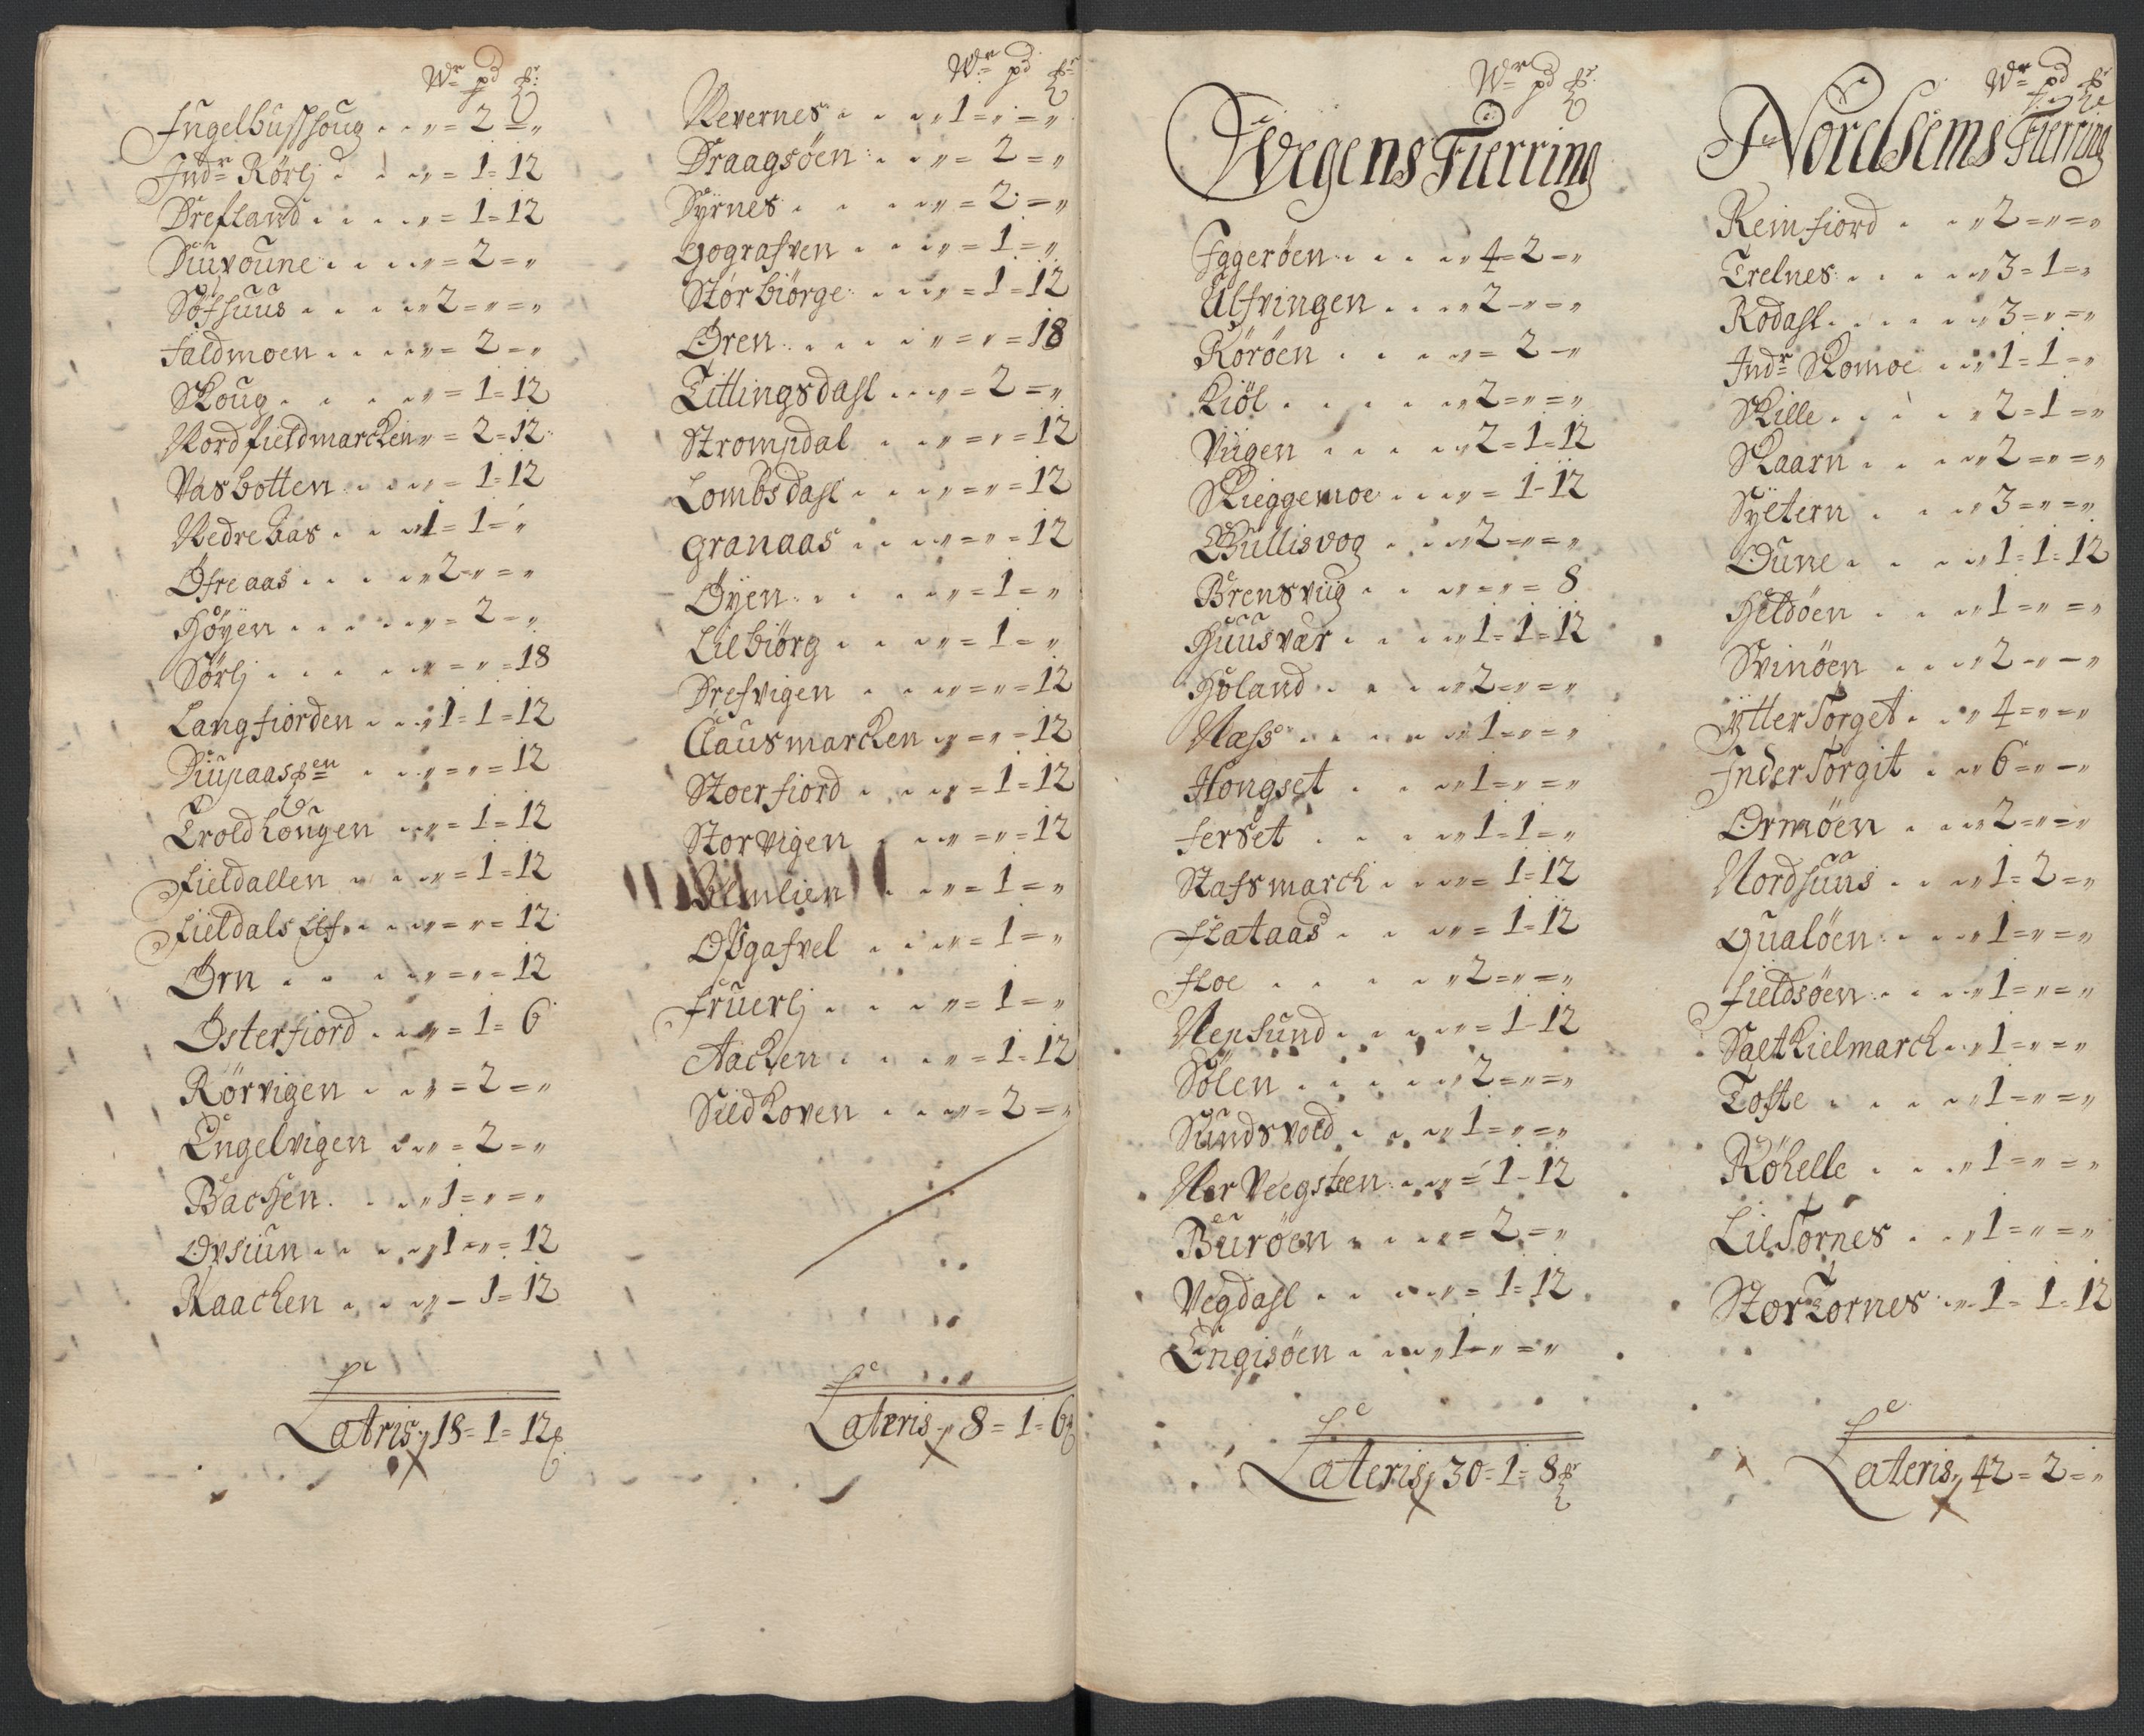 Wr pd
Ingelbusshoug . . „ = 2 = „
Indr Rörlj . . „ = 1 = 12
Drefland . . . . „ = 1 = 12
Diuvoune . . . . „ = 2 = „
Söfhuus . . . . „ 2 = „ = „
Faldmoen . . . . „ = 2 = „
Skoug . . . . „ = 1 = 12
Nordfieldmarchen „ = 2 = 12
Vasbotten . . . „ = 1 = 12
Nedre Aas . . „ 1 = 1 = „
Öfre aas . . . . „ 2 = „ = „
Höÿen . . . . „ = 2 = „
Sörlj . . . . „ = „ = 18
Langfiorden . . „ 1 = 1 = 12
Diupaasen . . „ = „ = 12
Troldhougen . . „ = 1 = 12
Fieldallen . . . „ = 1 = 12
Fieldals Elf . . . „ = „ = 12
Örn . . . . „ = „ = 12
Österfiord . . „ = 1 = 6
Rörvigen . . „ = 2 = „
Engelvigen . . „ = 2 = „
Bachen . . . „ 1 = „ = „
Ovsiun . . . „ 1 = „ = 12
Raachen . . . „ = 1 = 12
Lateris „ 18 = 1 = 12
Wr pd
Revernes . . . „ 1 = „ = „
Draagsöen . . „ = 2 = „
Dyrnes . . . „ = 2 = „
Gografven . . . „ = 1 = „
Störbiörge . . . „ = 1 = 12
Ören . . . . „ = „ = 18
Titlingsdahl . . „ = 2 = „
Strompdal . . „ = „ = 12
Lombsdahl . . . „ = „ = 12
Granaas . . . „ = „ = 12
Öÿen . . . . „ = 1 = „
Lilbiörg . . . „ = 1 = „
Drefvigen . . . „ = „ = 12
Clausmarchen „ = „ = 12
Stoerfiord . . . „ = 1 = 12
Storvigen . . . „ = „ = 12
. . . „ = 1 = „
Opgafvel . . . „ = 1 = „
Fruerlj . . . „ = 1 = „
Aachen . . . „ = 1 = 12
Sildhoven . . „ = 2 = „
Lateris „ 8 = 1 = 6
Wr pd
Wegens Fierring
Iggeröen . . . . „ 4 = 2 = „
Ulfvingen . . . „ 2 = „ = „
Röröen . . . . „ = 2 = „
Kiöl . . . . „ 2 = „ = „
Viigen . . . . „ 2 = 1 = 12
Skieggemoe . . . „ = 1 = 12
Gullisvog . . . „ 2 = „ = „
Brensviig . . . „ = „ = 8
Huusvær . . . . „ 1 = 1 = 12
Holand . . . . „ 2 = „ = „
Næss . . . . „ 1 = „ = „
Hongset . . . „ 1 = „ = „
Ferset . . . . „ 1 = 1 = „
Stafsmarch . . . „ = 1 = 12
Flataas . . . „ = 1 = 12
Floe . . . . „ 2 = „ = „
Nepsund . . . . „ = 1 = 12
Sölen . . . . „ 2 = „ = „
Sundsvold . . . „ 1 = „ = „
Nor Veegsteen . . „ = 1 = 12
Buröen . . . „ = 2 = „
Vegdahl . . . . „ = 1 = 12
Engisöen . . . „ 1 = „ = „
Lateris „ 30 = 1 = 8
Wr pd
Nordsems Fierring
Reinfiord . . „ 2 = „ = „
Trelnes . . . . „ 3 = 1 = „
Rodahl . . . . „ 3 = „ = „
Indr Skomoe . . „ 1 = 1 = „
Skille . . . . „ 2 = 1 = „
Skaarn . . . „ 2 = „ = „
Syetern . . . „ 3 = „ = „
Oune . . . „ 1 = 1 = 12
Heldöen . . . „ 1 = „ = „
Svinöen . . . „ 2 = „ = „
Ytter Torget . . „ 4 = „ = „
Inder Torgit . . „ 6 = „ = „
Ormöen . . . „ 2 = „ = „
Nordhuus . . . „ 1 = 2 = „
Qualöen . . . „ 1 = „ = „
Fieldsöen . . . „ 1 = „ = „
Saltkielmarch . . „ 1 = „ = „
Tofte . . . . „ 1 = „ = „
Röhelle . . . „ 1 = „ = „
Lil Tornes . . . „ 1 = „ = „
Stor Tornes . . „ 1 = 1 = 12
Lateris „ 42 = 2 = „